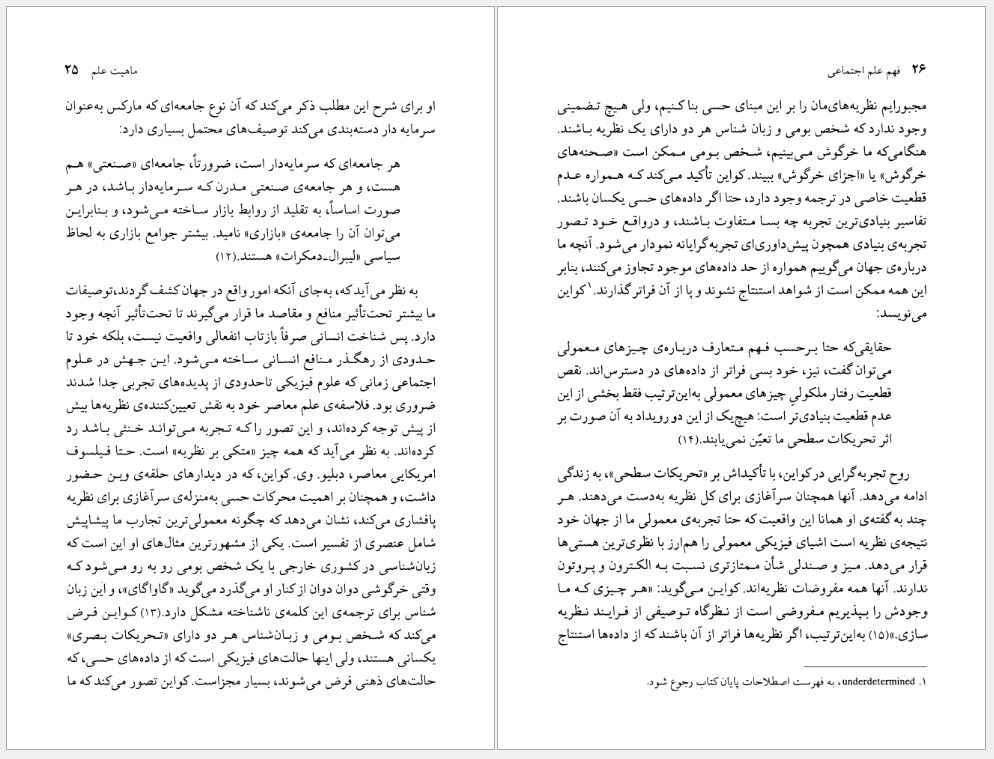 ماهیت علم ۲۵
او برای شرح این مطلب ذکر می‌کند که آن نوع جامعه‌ای که مارکس به‌عنوان
سرمایه دار دسته‌بندی می‌کند توصیف‌های محتمل بسیاری دارد:
هر جامعه‌ای که سرمایه‌دار است، ضرورتاً، جامعه‌ای «صنعتی» هم
هست، و هر جامعه‌ی صنعتی مدرن که سرمایه‌دار باشد، در هر
صورت اساساً، به تقلید از روابط بازار ساخته می‌شود، و بنابراین
می‌توان آن را جامعه‌ی «بازاری» نامید. بیشتر جوامع بازاری به لحاظ
سیاسی «لیبرال-دمکرات» هستند.(۱۲)
به نظر می‌آید که، به‌جای آنکه امور واقع در جهان کشف گردند،توصیفات
ما بیشتر تحت‌تأثیر منافع و مقاصد ما قرار می‌گیرند تا تحت‌تأثیر آنچه وجود
دارد. پس شناخت انسانی صرفاً بازتاب انفعالی واقعیت نیست، بلکه خود تا
حدودی از رهگذر منافع انسانی ساخته می‌شود. این جهش در علوم
اجتماعی زمانی که علوم فیزیکی تاحدودی از پدیده‌های تجربی جدا شدند
ضروری بود. فلاسفه‌ی علم معاصر خود به نقش تعیین‌کننده‌ی نظریه‌ها بیش
از پیش توجه کرده‌اند، و این تصور را که تجربه می‌تواند خنثی باشد رد
کرده‌اند. به نظر می‌آید که همه چیز «متکی بر نظریه» است. حتا فیلسوف
امریکایی معاصر، دبلیو. وی. کواین، که در دیدارهای حلقه‌ی وین حضور
داشت، و همچنان بر اهمیت محرکات حسی به‌منزله‌ی سرآغازی برای نظریه
پافشاری می‌کند، نشان می‌دهد که چگونه معمولی‌ترین تجارب ما پیشاپیش
شامل عنصری از تفسیر است. یکی از مشهورترین مثال‌های او این است که
زبان‌شناسی در کشوری خارجی با یک شخص بومی رو به رو می‌شود که
وقتی خرگوشی دوان دوان از کنار او می‌گذرد می‌گوید «گاواگای»، و این زبان
شناس برای ترجمه‌ی این کلمه‌ی ناشناخته مشکل دارد.(۱۳) کواین فرض
می‌کند که شخص بومی و زبان‌شناس هر دو دارای «تحریکات بصری»
یکسانی هستند، ولی اینها حالت‌های فیزیکی است که از داده‌های حسی، که
حالت‌های ذهنی فرض می‌شوند، بسیار مجزاست. کواین تصور می‌کند که ما
۲۶ فهم علم اجتماعی
مجبورایم نظریه‌های‌مان را بر این مبنای حسی بنا کنیم، ولی هیچ تضمینی
وجود ندارد که شخص بومی و زبان شناس هر دو دارای یک نظریه باشند.
هنگامی‌که ما خرگوش می‌بینیم، شخص بومی ممکن است «صحنه‌های
خرگوش» یا «اجزای خرگوش» ببیند. کواین تأکید می‌کند که همواره عدم
قطعیت خاصی در ترجمه وجود دارد، حتا اگر داده‌های حسی یکسان باشند.
تفاسیر بنیادی‌ترین تجربه چه بسا متفاوت باشند، و درواقع خود تصور
تجربه‌ی بنیادی همچون پیش‌داوری‌ای تجربه‌گرایانه نمودار می‌شود. آنچه ما
درباره‌ی جهان می‌گوییم همواره از حد داده‌های موجود تجاوز می‌کنند، بنابر
این همه ممکن است از شواهد استنتاج نشوند و پا از آن فراتر گذارند.۱ کواین
می‌نویسد:
حقایقی‌که حتا برحسب فهم متعارف درباره‌ی چیزهای معمولی
می‌توان گفت، نیز، خود بسی فراتر از داده‌های در دسترس‌اند. نقص
قطعیت رفتار ملکولیِ چیزهای معمولی به‌این‌ترتیب فقط بخشی از این
عدم قطعیت بنیادی‌تر است: هیچ‌یک از این دو رویداد به آن صورت بر
اثر تحریکات سطحی ما تعیّن نمی‌یابند.(۱۴)
روح تجربه‌گرایی در کواین، با تأکیداش بر «تحریکات سطحی»، به زندگی
ادامه می‌دهد. آنها همچنان سرآغازی برای کل نظریه به‌دست می‌دهند. هر
چند به گفته‌ی او همانا این واقعیت که حتا تجربه‌ی معمولی ما از جهان خود
نتیجه‌ی نظریه است اشیای فیزیکی معمولی را هم‌ارز با نظری‌ترین هستی‌ها
قرار می‌دهد. میز و صندلی شأن ممتازتری نسبت به الکترون و پروتون
ندارند. آنها همه مفروضات نظریه‌اند. کواین می‌گوید: «هر چیزی که ما
وجودش را بپذیریم مفروضی است از نظرگاه توصیفی از فرایند نظریه
سازی.»(۱۵) به‌این‌ترتیب، اگر نظریه‌ها فراتر از آن باشند که از داده‌ها استنتاج
۱. underdetermined، به فهرست اصطلاحات پایان کتاب رجوع شود.